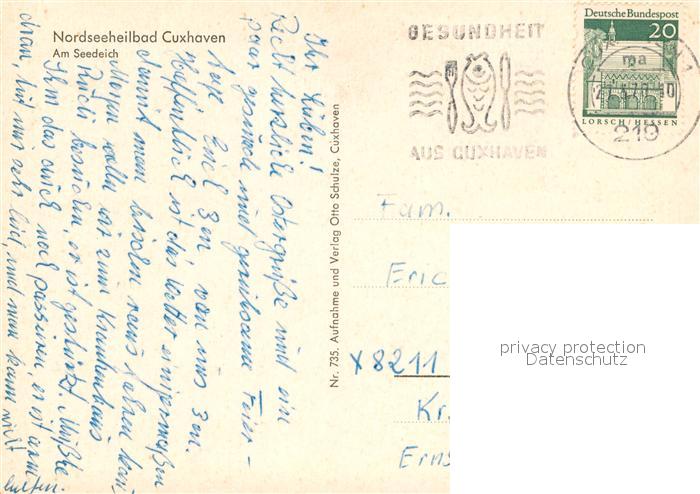 Nordseeheilbad Cuxhaven
Am Seedeich
GESUNDHEIT
AUS CUXHAVEN
Deutsche Bundespost
20
LORSCH/HESSEN
219
Nr. 735. Aufnahme und Verlag Otto Schulze, Cuxhaven
Ihr Lieben!
Recht herzliche Ostergrüße und ein
paar gesunde und geruhsame Feier-
tage Euch 3en von uns 3en.
Hoffentlich ist das Wetter einigermaßen
damit man bischen raus fahren kann
Morgen wollen wir zum Krankenhaus
Rudi besuchen, er ist gestürzt. Mußte
Ihm das auch noch passieren, er ist arm
dran, tut mir sehr leid, und man kann nicht
helfen.
Fam.
Eric
x8211
Kr.
Erns
privacy protection
Datenschutz